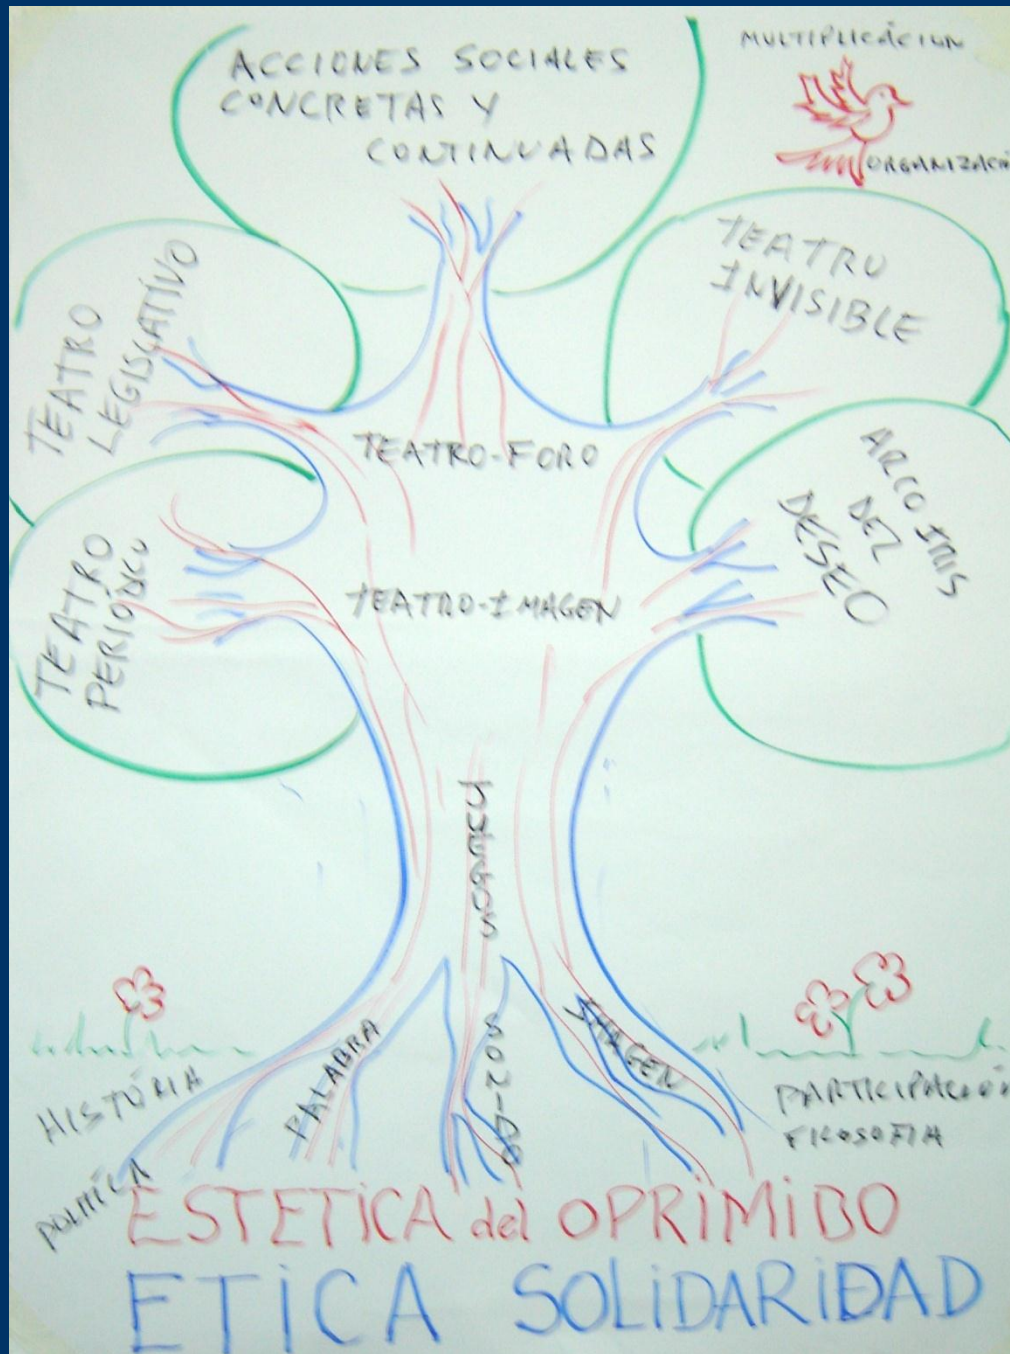 ACCIONES SOCIALES
CONCRETAS Y
CONTINUADAS
MULTIPLICÁCION
ORGANIZACIÓ
TEATRO
LEGISLATÍVO
TEATRO
INVISIBLE
TEATRO-FORO
ARCO IRIS
DEL
DESEO
TEATRO
PERIÓDICO
TEATRO-IMAGEN
JUEGOS
PALABRA
SONIDO
IMAGEN
HISTÓRIA
POLÍTICA
PARTICIPACIÓN
FILOSOFIA
ESTETICA del OPRIMIDO
ETICA SOLIDARIDAD